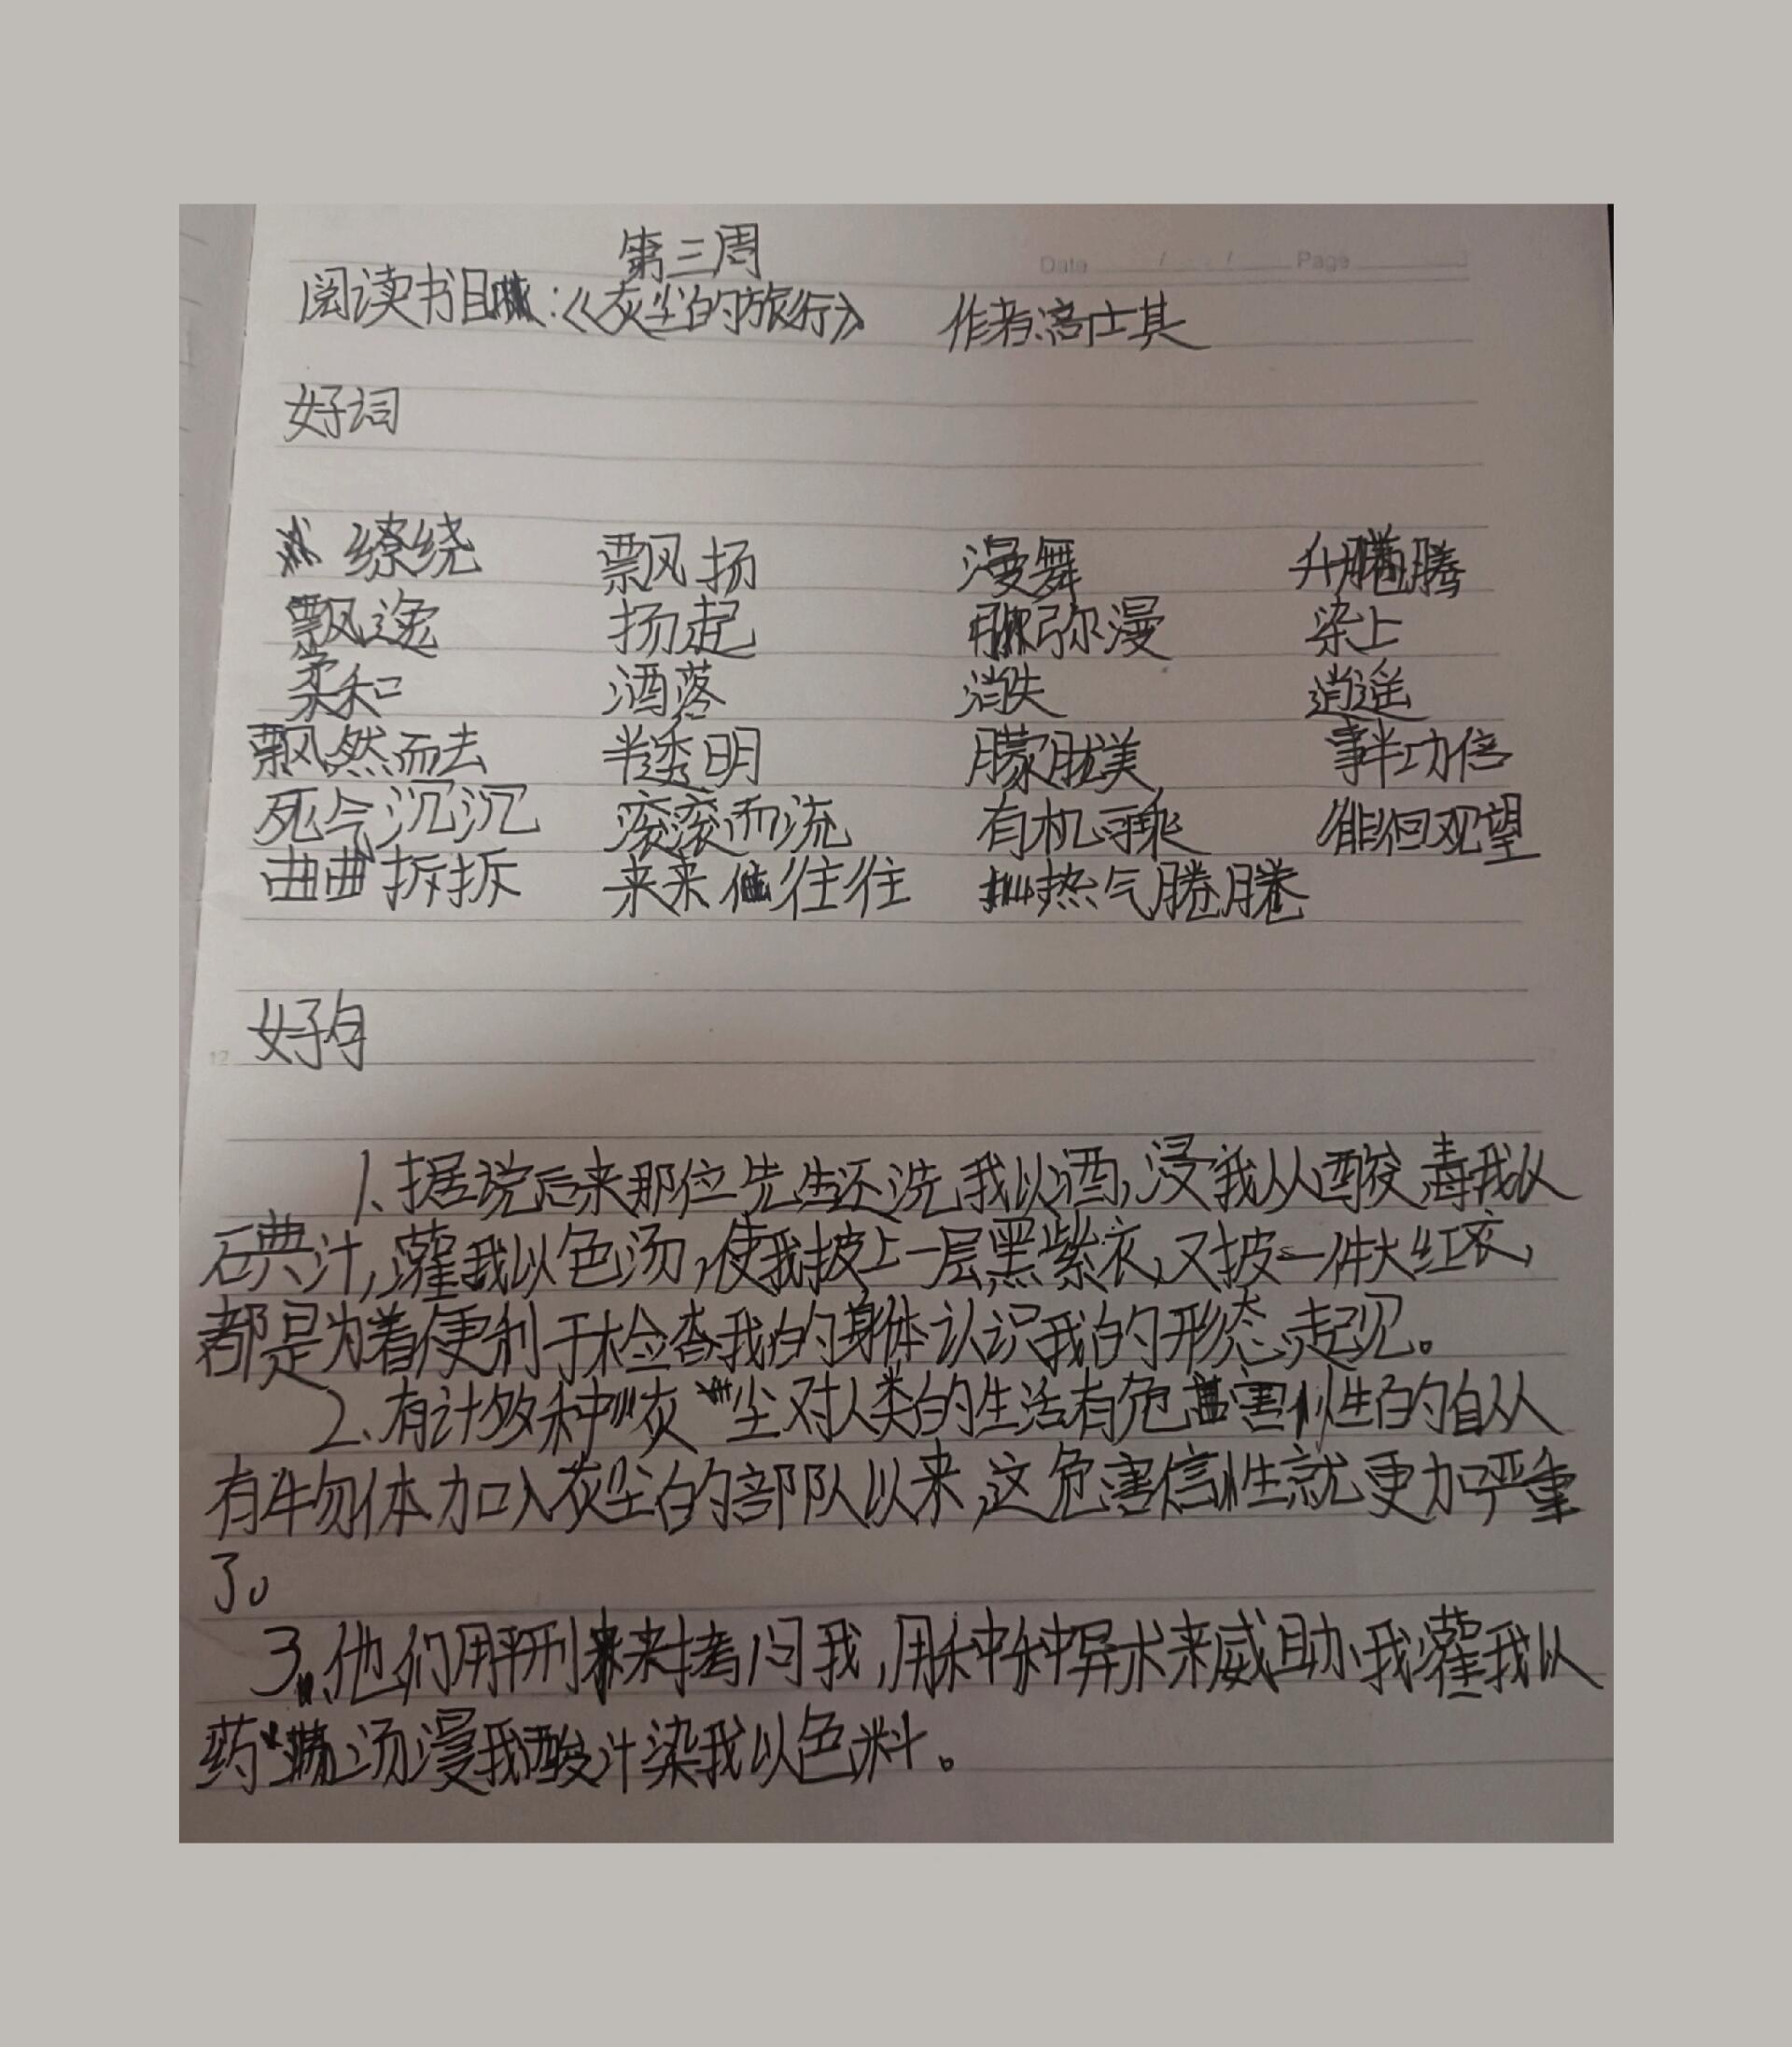 第三周
Data / / Page
阅读书目:《灰尘的旅行》 作者:高士其
好词
缭绕 飘扬 漫舞 升腾
飘逸 扬起 弥漫 染上
柔和 洒落 消失 逍遥
飘然而去 半透明 朦胧美 事半功倍
死气沉沉 滚滚而流 有机可乘 徘徊观望
曲曲拆拆 来来往往 热气腾腾
好句
12
1、据说后来那位先生还洗我以酒,浸我以酸,毒我以
碘汁,灌我以色汤,使我披上一层黑紫衣,又披一件大红衣,
都是为着便利于检查我的身体认识我的形态起见。
2、有许多种灰尘对人类的生活有危害性的自从
有生物体加入灰尘的部队以来,这危害性就更加严重
了。
3、他们用刑来拷问我,用种种异术来威胁我灌我以
药汤浸我酸汁染我以色料。